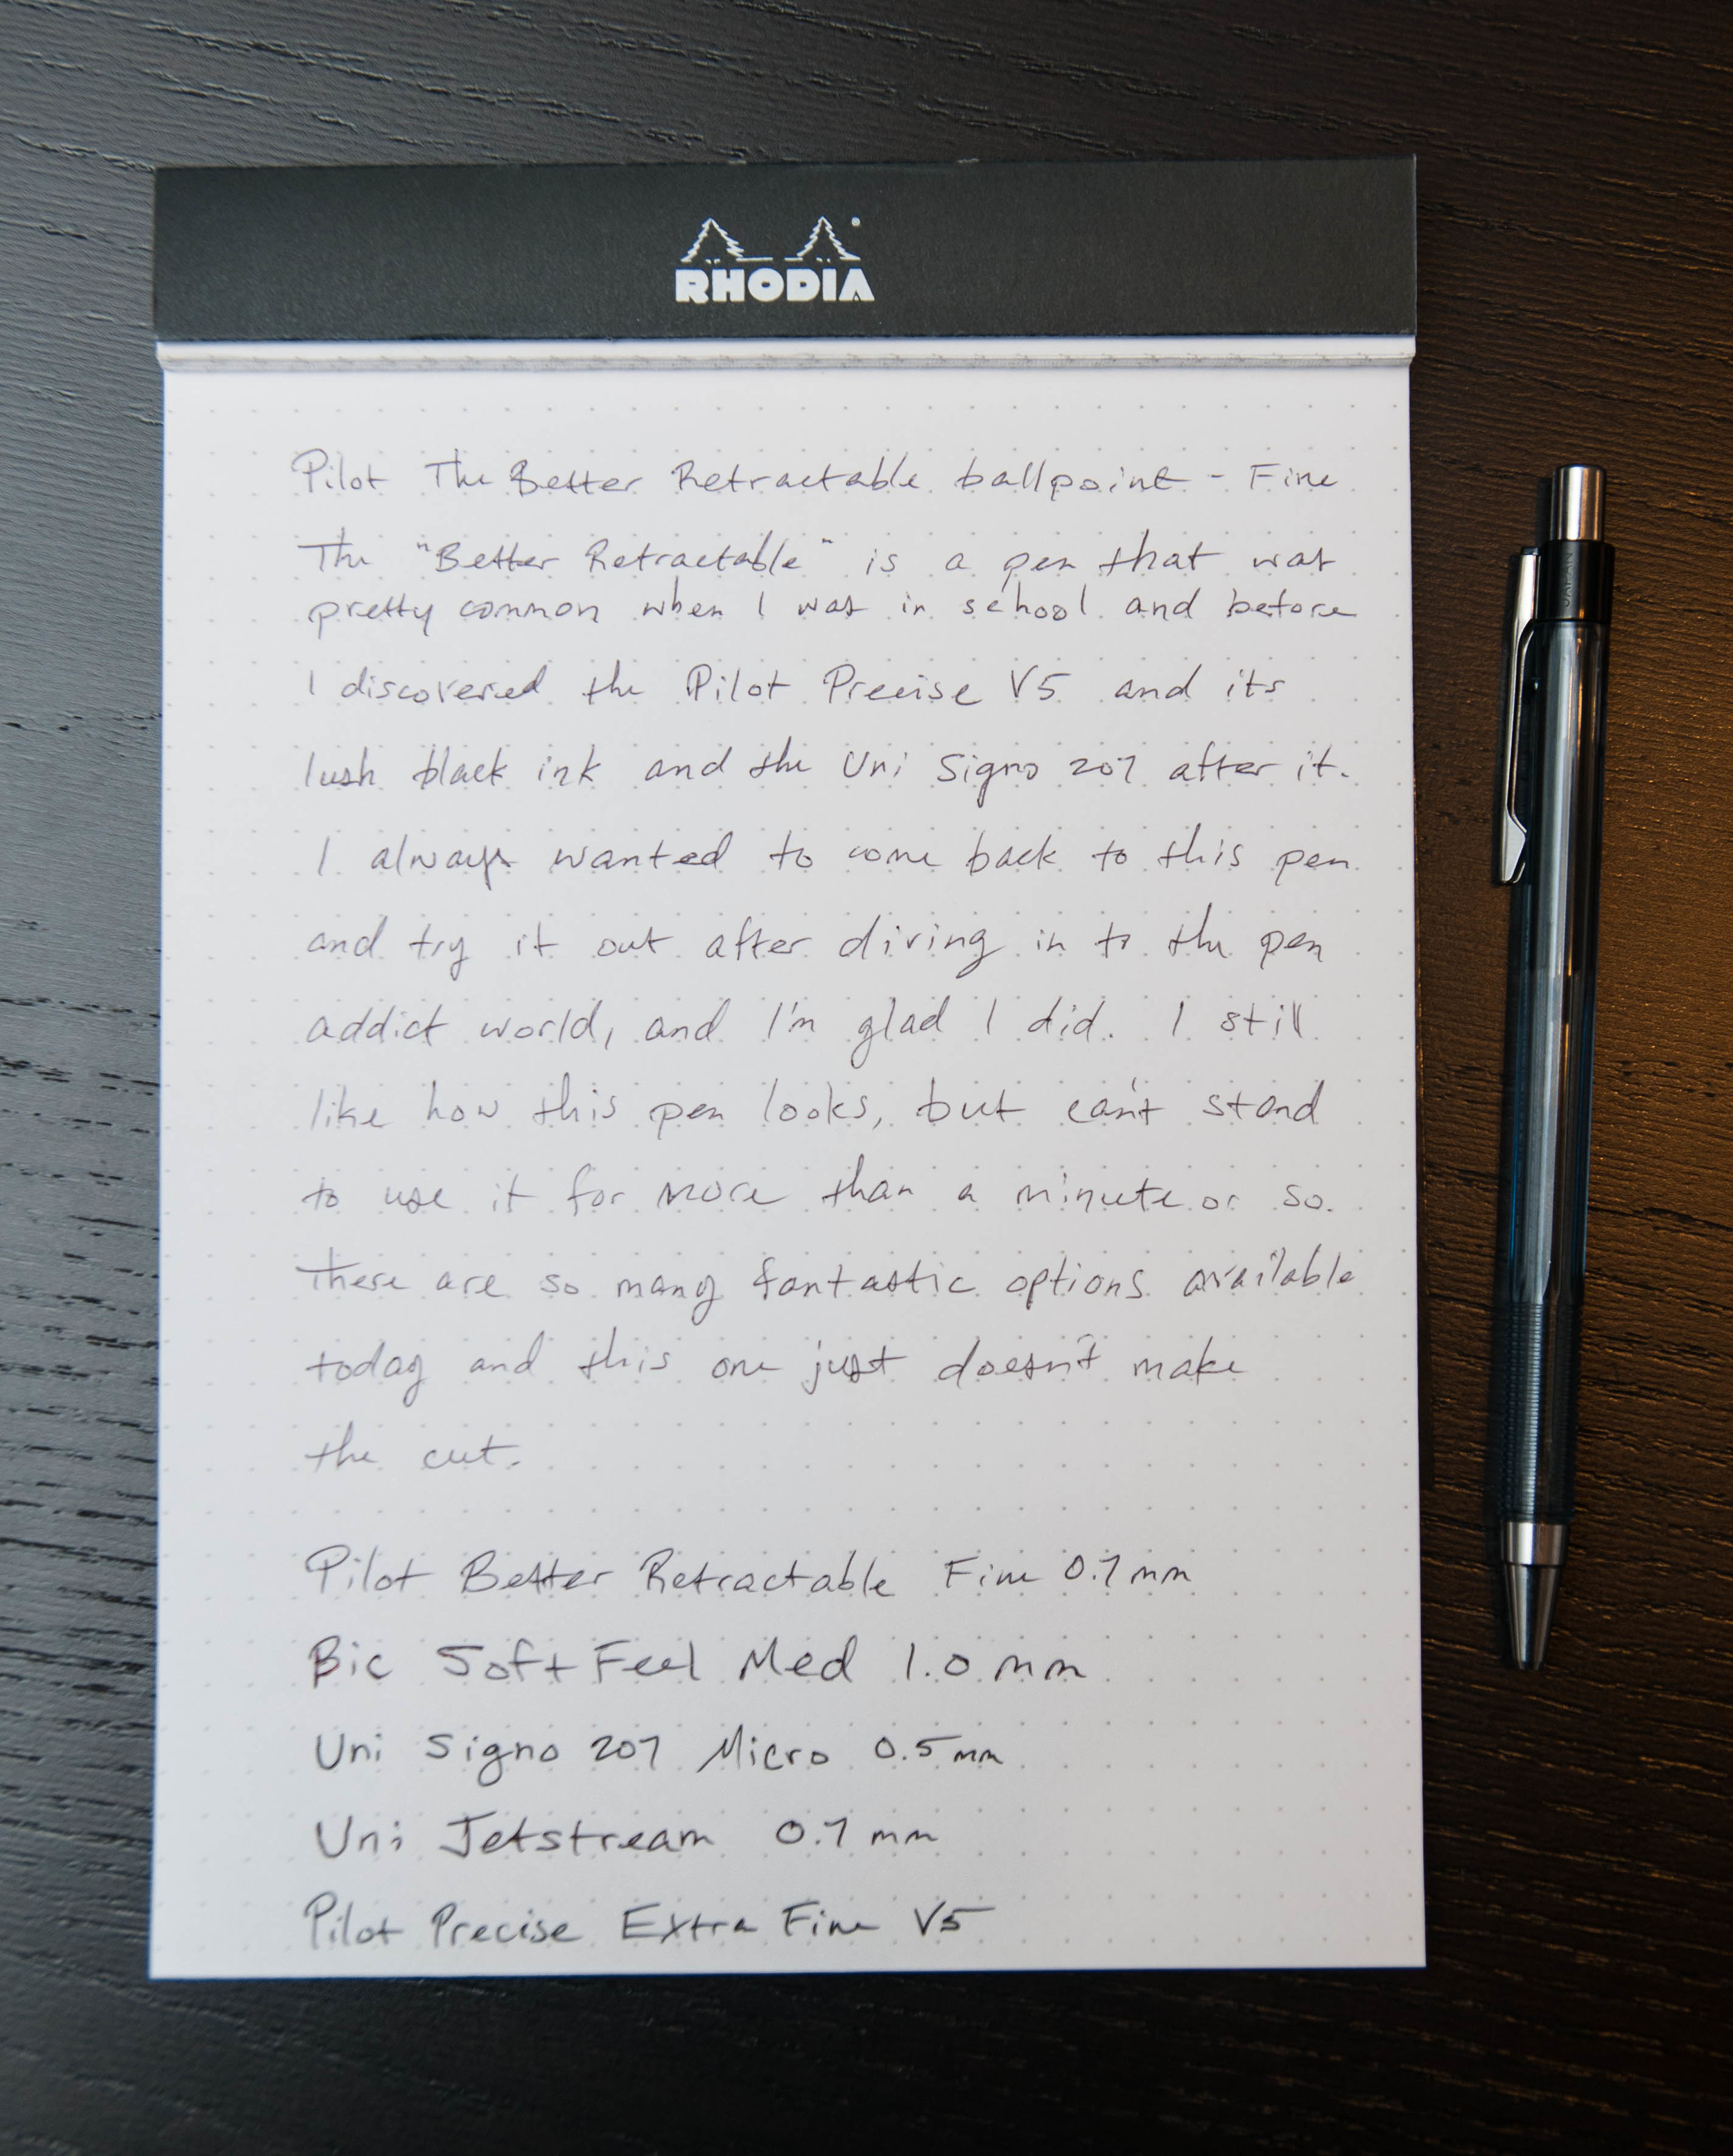 RHODIA
Pilot The Better Retractable ballpoint - Fine
The "Better Retractable" is a pen that was
pretty common when I was in school and before
I discovered the Pilot Precise V5 and its
lush black ink and the Uni Signo 207 after it.
I always wanted to come back to this pen
and try it out after diving in to the pen
addict world, and I'm glad I did. I still
like how this pen looks, but can't stand
to use it for more than a minute or so.
There are so many fantastic options available
today and this one just doesn't make
the cut.
Pilot Better Retractable Fine 0.7mm
Bic Soft Feel Med 1.0 mm
Uni Signo 207 Micro 0.5mm
Uni Jetstream 0.7 mm
Pilot Precise Extra Fine V5
JAPAN